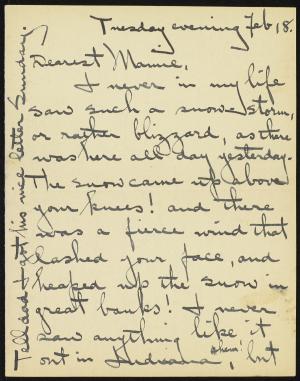 Tuesday evening Feb 18.
Dearest Mamie,
I never in my life
saw such a snow storm,
or rather blizzard, as there
was here all day yesterday.
The snow came up above
your knees! and there
was a fierce wind that
lashed your face, and
heaped up the snow in
great banks! I never
saw anything like it
ahem!
out in Indiana, but
Tell dad I got his nice letter Sunday.